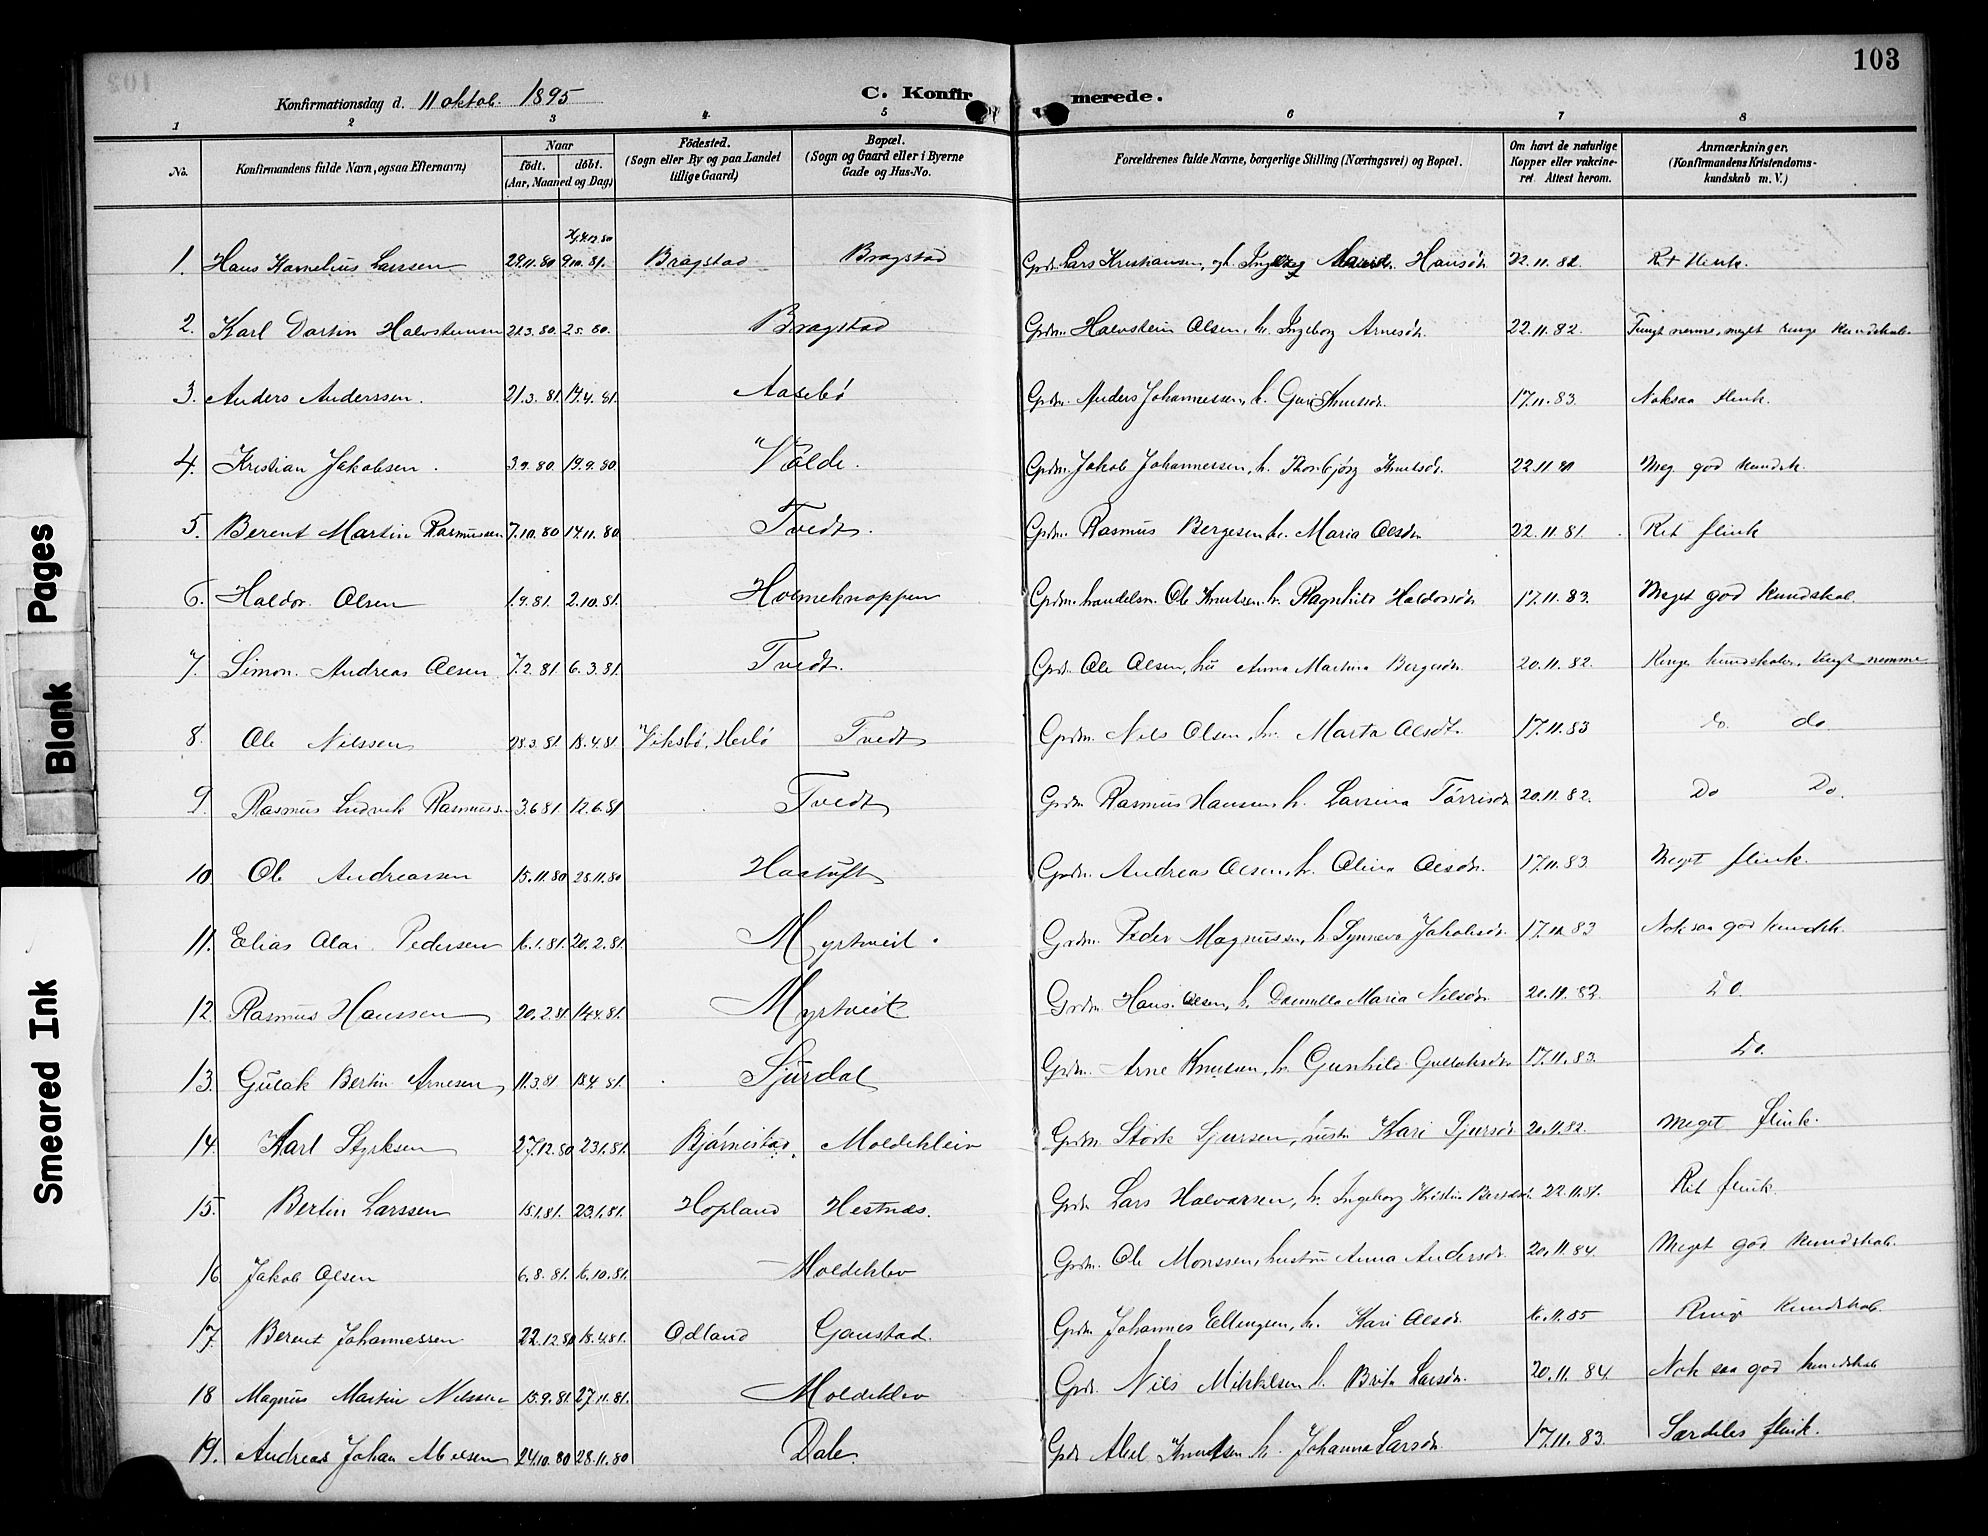 103
Konfirmationsdag d. 11 oktob. 1895
C. Konfirmerede.
1 2 3 4 5 6 7 8
No. Konfirmandens fulde Navn, ogsaa Efternavn) Naar født. døbt. (Aar, Maaned og Dag) Fødested. (Sogn eller By og paa Landet tillige Gaard) Bopæl. (Sogn og Gaard eller i Byerne Gade og Hus-No. Forældrenes fulde Navne, borgerlige Stilling (Næringsvei) og Bopæl. Om havt de naturlige Kopper eller vakcineret. Attest herom. Anmærkninger. (Konfirmandens Kristendomskundskab m. V.)
1. Hans Kornelius Larssen 29.11.80 9.10.81. Bragstad Bragstad Grdm. Lars Kristiansen, Hansdtr. 22.11.82. Ret flink.
2. Karl Halvsteinsen 21.3.80. 2.5.80. Bragstad Grdm. Halvstein Olsen, h. Ingeborg Arnesdtr. 22.11.82. Tungt nemme, meget ringe kundskab.
3. Anders Anderssen. 21.3.81. 17.4.81. Aasebø Grdm. Anders Johannessen, h. Guri Knutsdtr. 17.11.83. Noksaa flink.
4. Kristian Jakobsen. 3.9.80. 19.9.80. Grdm. Jakob Johannessen, h. Thorbjørg Knutsdtr. Meg god kundsk.
5. Berent Martin Rasmussen 7.10.80 14.11.80 Tvedt. Grdm. Rasmus Bergesen h. Maria Olsdtr. 22.11.81. Ret flink
6. Haldor Olsen 1.9.81. 2.10.81. Holmeknappen Grdm. handelsm. Ole Knutsen, h. Ragnhild Haldorsdtr. 17.11.83. Meget god kundskab.
7. Simon Andreas Olsen 7.2.81 6.3.81. Tvedt. Grdm. Ole Olsen, hu Anna Martina Bergesdtr. 20.11.82. Ringe kundskaber, tungt nemme
8. Ole Nilssen 28.3.81. 18.4.81. Viksbø, Herlø Tvedt Grdm. Nils Olsen, h. Marta Olsdt. 17.11.83 do. do.
9. Rasmus Ludvik Rasmussen 3.6.81 12.6.81 Tvedt Grdm. Rasmus Hansen, h. Larsina Tørrisdtr 20.11.82. Do Do.
10. Ole Andreassen 15.11.80 28.11.80 Haatuft Grdm. Andreas Olsen, h. Olina Olsdtr. 17.11.83 Meget flink.
11. Elias Olai Pedersen 16.1.81. 20.2.81. Myrtveit. Grdm. Peder Magnussen, h. Synneva Jakobsdtr. 17.11.83 Noksaa god kundsk.
12. Rasmus Hanssen 20.2.81. 14.4.81. Myrtveit Grdm. Hans Olsen, h. Maria Nilsdtr. 20.11.82. Do.
13. Gulak Bertin Arnesen 11.3.81 18.4.81. Sjurdal Grdm. Arne Knutsen, h. Gunhild Gullaksdtr 17.11.83. Do.
14. Karl Styrksen 27.12.80 23.1.81. Bjørnestad, Moldekleiv Grdm. Størk Sjursen, hustr Kari Sjursdtr 20.11.82. Meget flink.
15. Bertin Larssen 15.1.81. 23.1.81. Hopland Hestnes. Grdm. Lars Halvorsen, h. Ingeborg Kristine 22.11.81. Ret flink
16. Jakob Olsen 6.8.81. 16.10.81. Moldeklev Grdm. Ole Monssen, hustru Anna Andersdtr. 20.11.84. Meget god kundskab.
17. Berent Johannessen 22.12.80 18.4.81. Odland Gaustad. Grdm. Johannes Ellingsen, h. Kari Olsdtr. 16.11.85 Ringe kundskab.
18 Magnus Martin Nilssen 15.9.81. 27.11.81. Moldeklev Grdm. Nils Mikkelsen h. Brita Larsdtr. 20.11.84. Nok saa god kundskab
19. Andreas Johan Abelsen 24.10.80 28.11.80 Dale. Grdm Abel Knutsen h. Johanna Larsdtr. 17.11.83. Særdeles flink.
Blank Pages
Smeared Ink